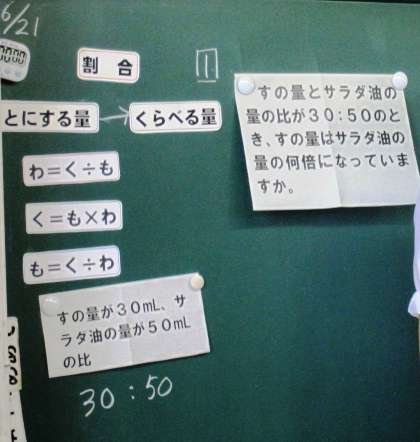 6/21
割合
1
とにする量
くらべる量
わ=く÷も
く=も×わ
も=く÷わ
すの量とサラダ油の
量の比が30:50のと
き、すの量はサラダ油の
量の何倍になっていま
すか。
すの量が30mL、サ
ラダ油の量が50mL
の比
30:50